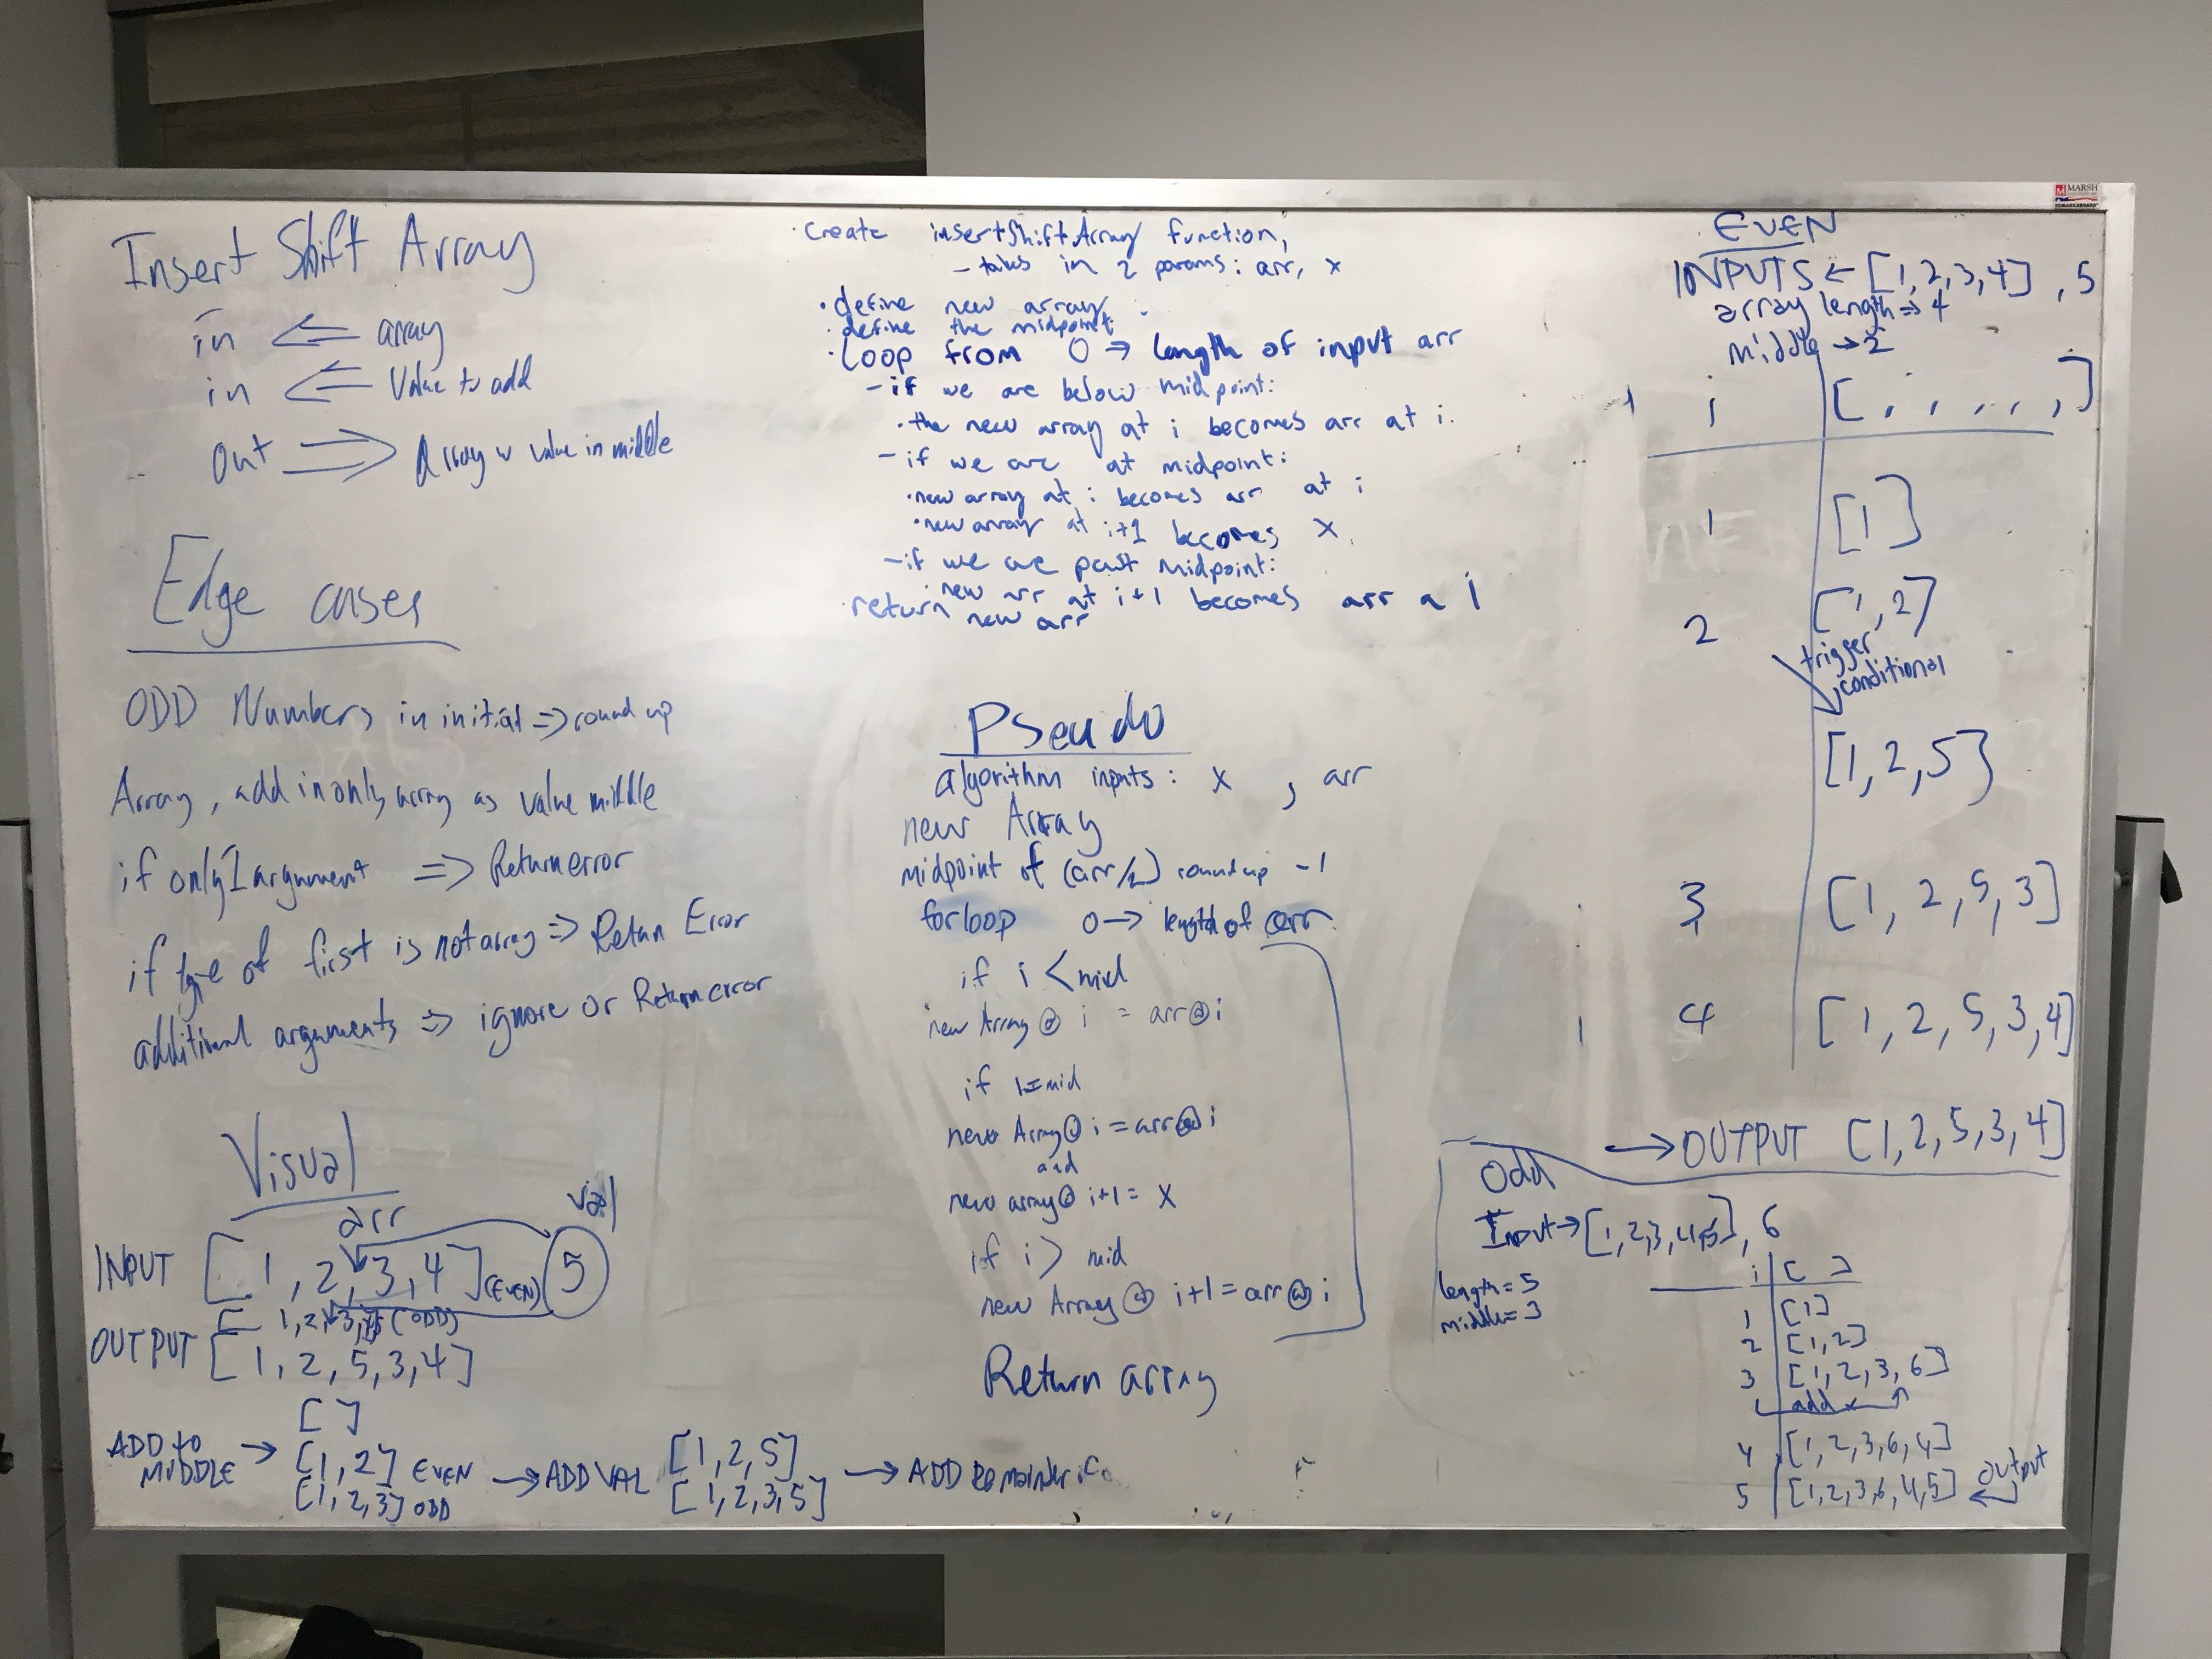 MARSH
Insert Shift Array
in <= array
in <= Value to add
Out => Array w value in middle
Edge cases
ODD Numbers in initial => round up
Array, add in only array as value middle
if only 1 argument => Return error
if type of first is not array => Return Error
additional arguments => ignore or Return error
Visual
arr val
INPUT [1, 2, 3, 4] (EVEN) 5
[ 1, 2, 3, (ODD)
OUTPUT [1, 2, 5, 3, 4]
[ ]
ADD to MIDDLE → [1, 2] EVEN
[1, 2, 3] ODD
→ ADD VAL [1, 2, 5]
[1, 2, 3, 5]
→ ADD Remainder
· Create insertShiftArray function,
- takes in 2 params: arr, x
· define new array
· define the midpoint
· Loop from 0 → length of input arr
- if we are below midpoint:
· the new array at i becomes arr at i.
- if we are at midpoint:
· new array at i becomes arr at i
· new array at i+1 becomes x
- if we are past midpoint:
new arr at i+1 becomes arr a i
· return new arr
Pseudo
algorithm inputs: x , arr
new Array
midpoint of (arr/2) round up -1
for loop 0 → length of arr
if i < mid
new Array @ i = arr @ i
if i = mid
new Array @ i = arr @ i
and
new array @ i+1 = X
if i > mid
new Array @ i+1 = arr @ i
Return array
EVEN
INPUTS ← [1,2,3,4] , 5
array length => 4
middle → 2
i [ , , , , ]
1 [1]
2 [1,2]
trigger
conditional
[1,2,5]
3 [1, 2, 5, 3]
4 [1, 2, 5, 3, 4]
→ OUTPUT [1,2,5,3,4]
Odd
Input → [1,2,3,4,5], 6
length = 5
middle = 3
i [ ]
1 [1]
2 [1,2]
3 [1,2,3,6]
add
4 [1,2,3,6,4]
5 [1,2,3,6,4,5] ← output